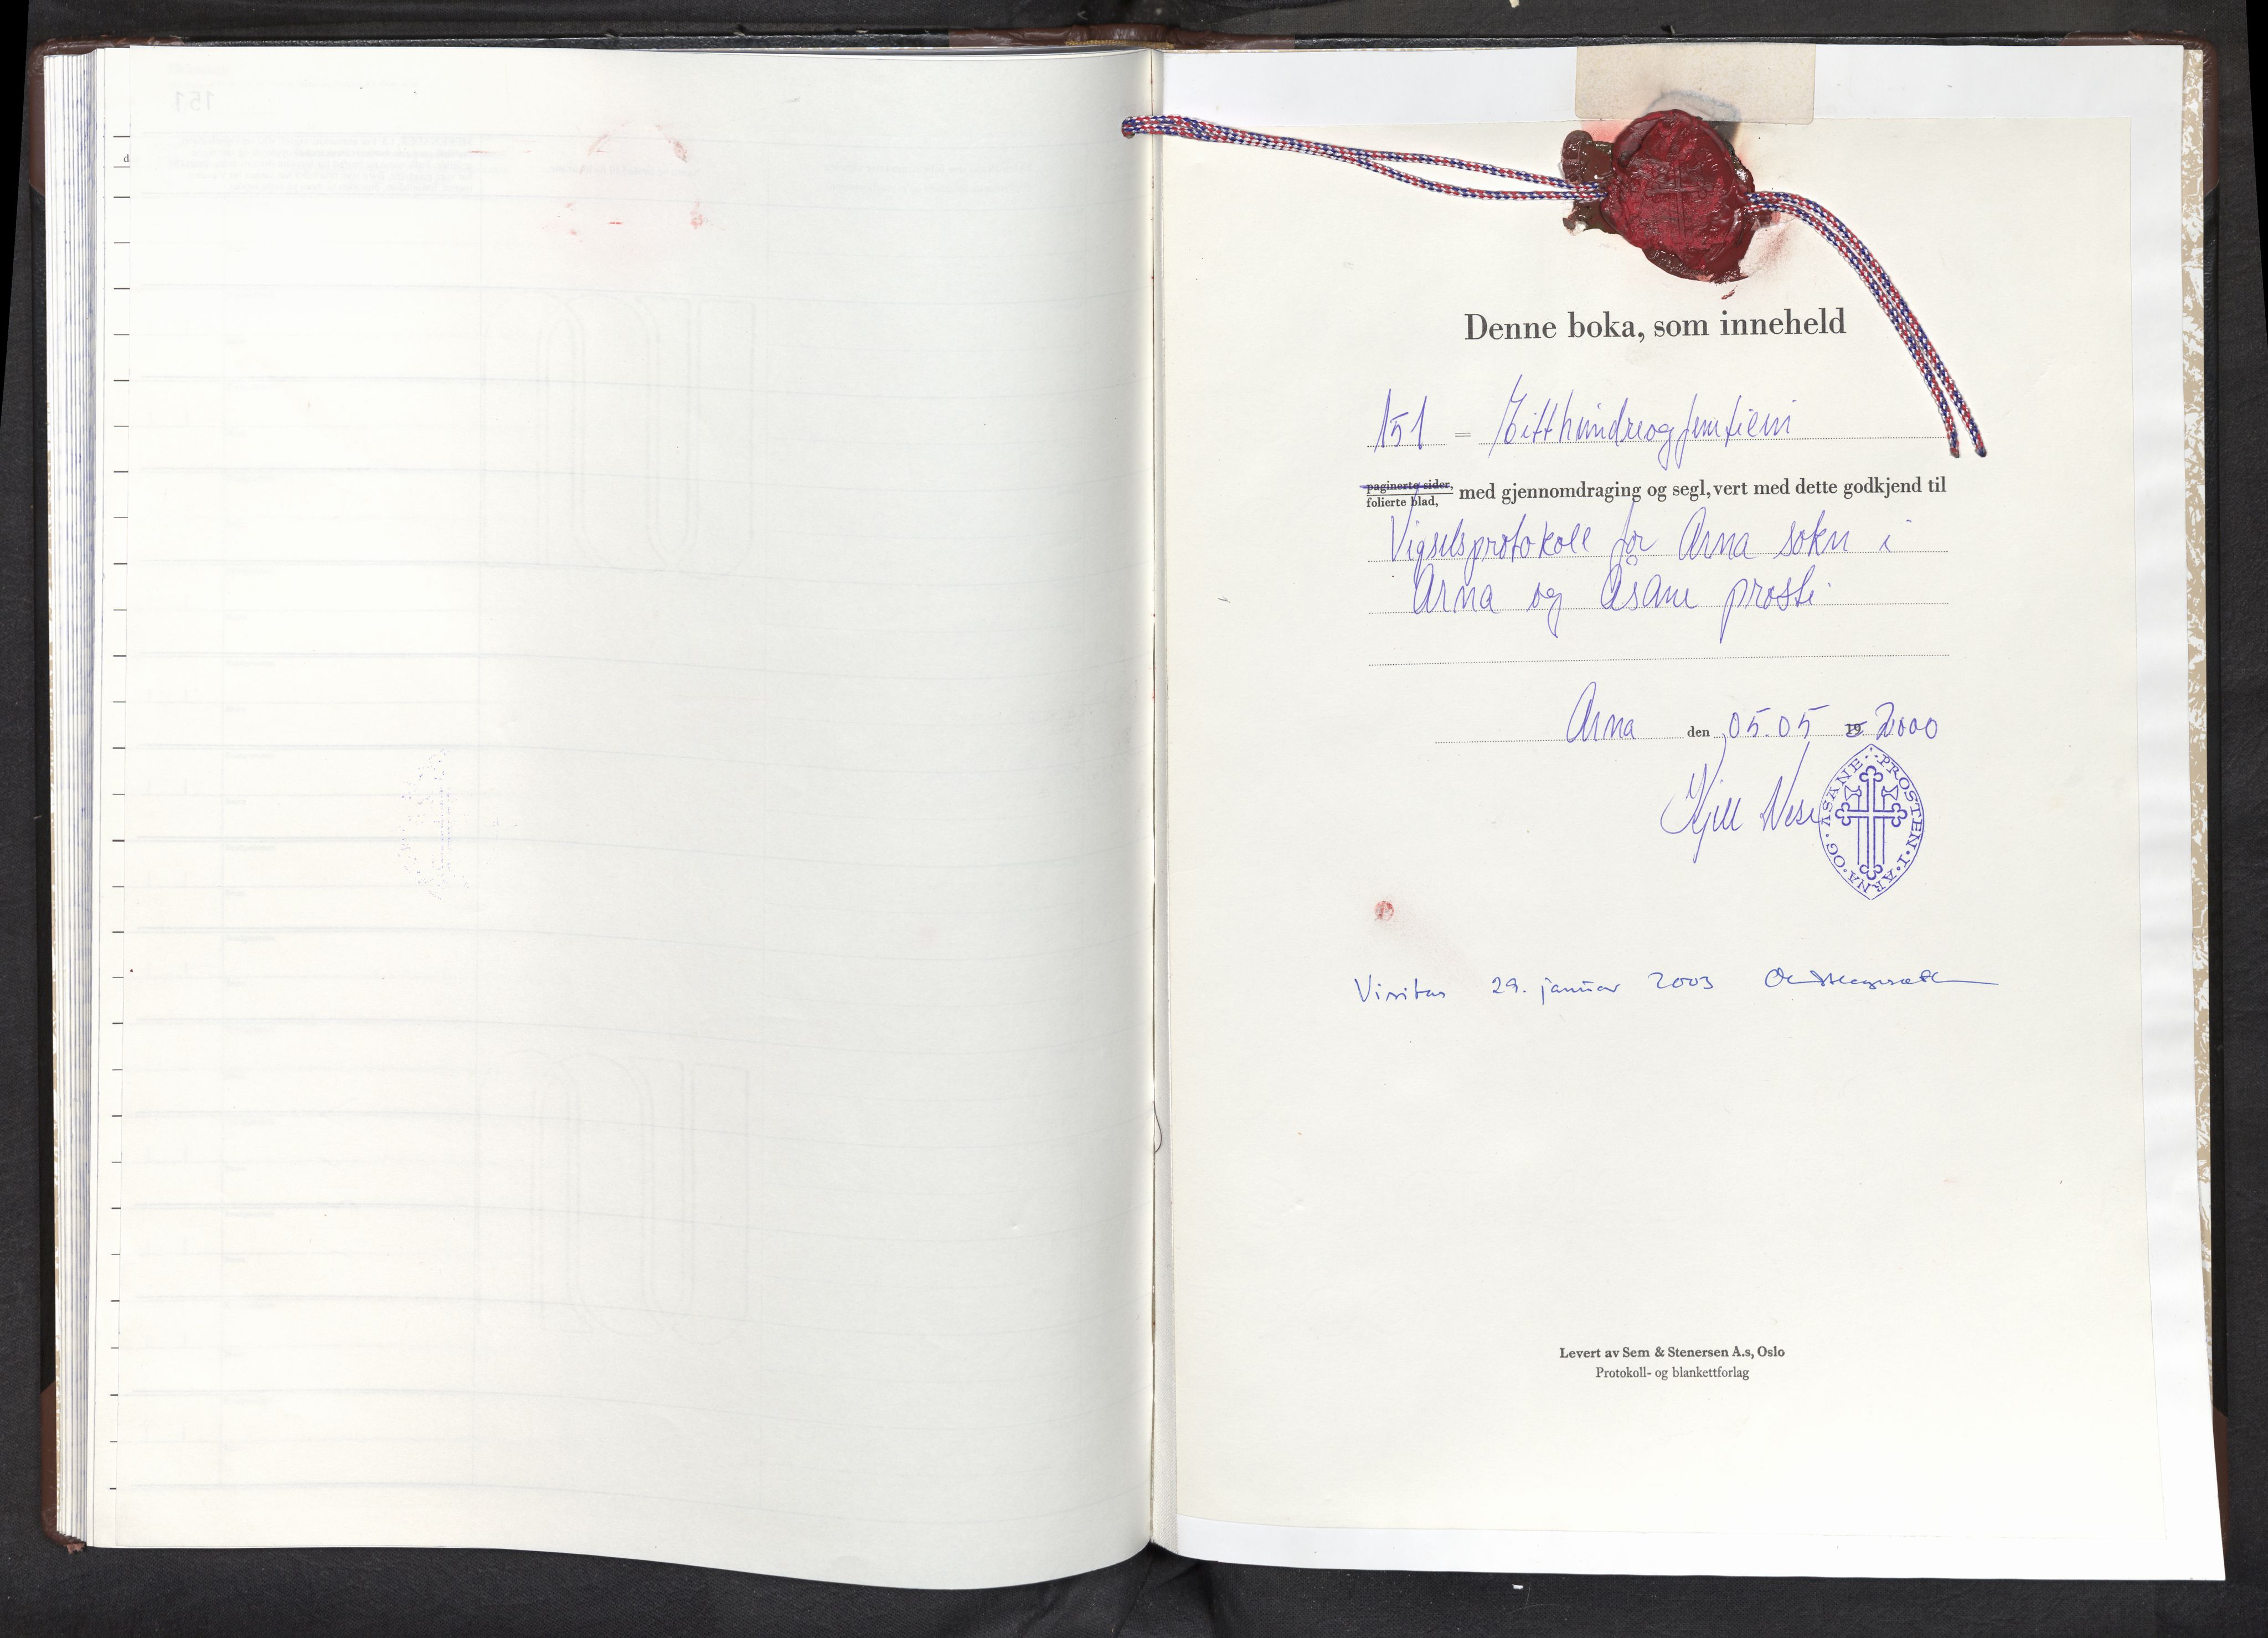 151
d
Denne boka, som inneheld
151 = Eitthundreogfemtiein
paginerte sider,
folierte blad, med gjennomdraging og segl, vert med dette godkjend til
Vigselsprotokoll for Arna sokn i
Arna og Åsane prosti
Arna den 05.05 19 2000
Kjell Nese
PROSTEN · I · ARNA · OG · ÅSANE
Visitas 29. januar 2003
Levert av Sem & Stenersen A.s, Oslo
Protokoll- og blankettforlag